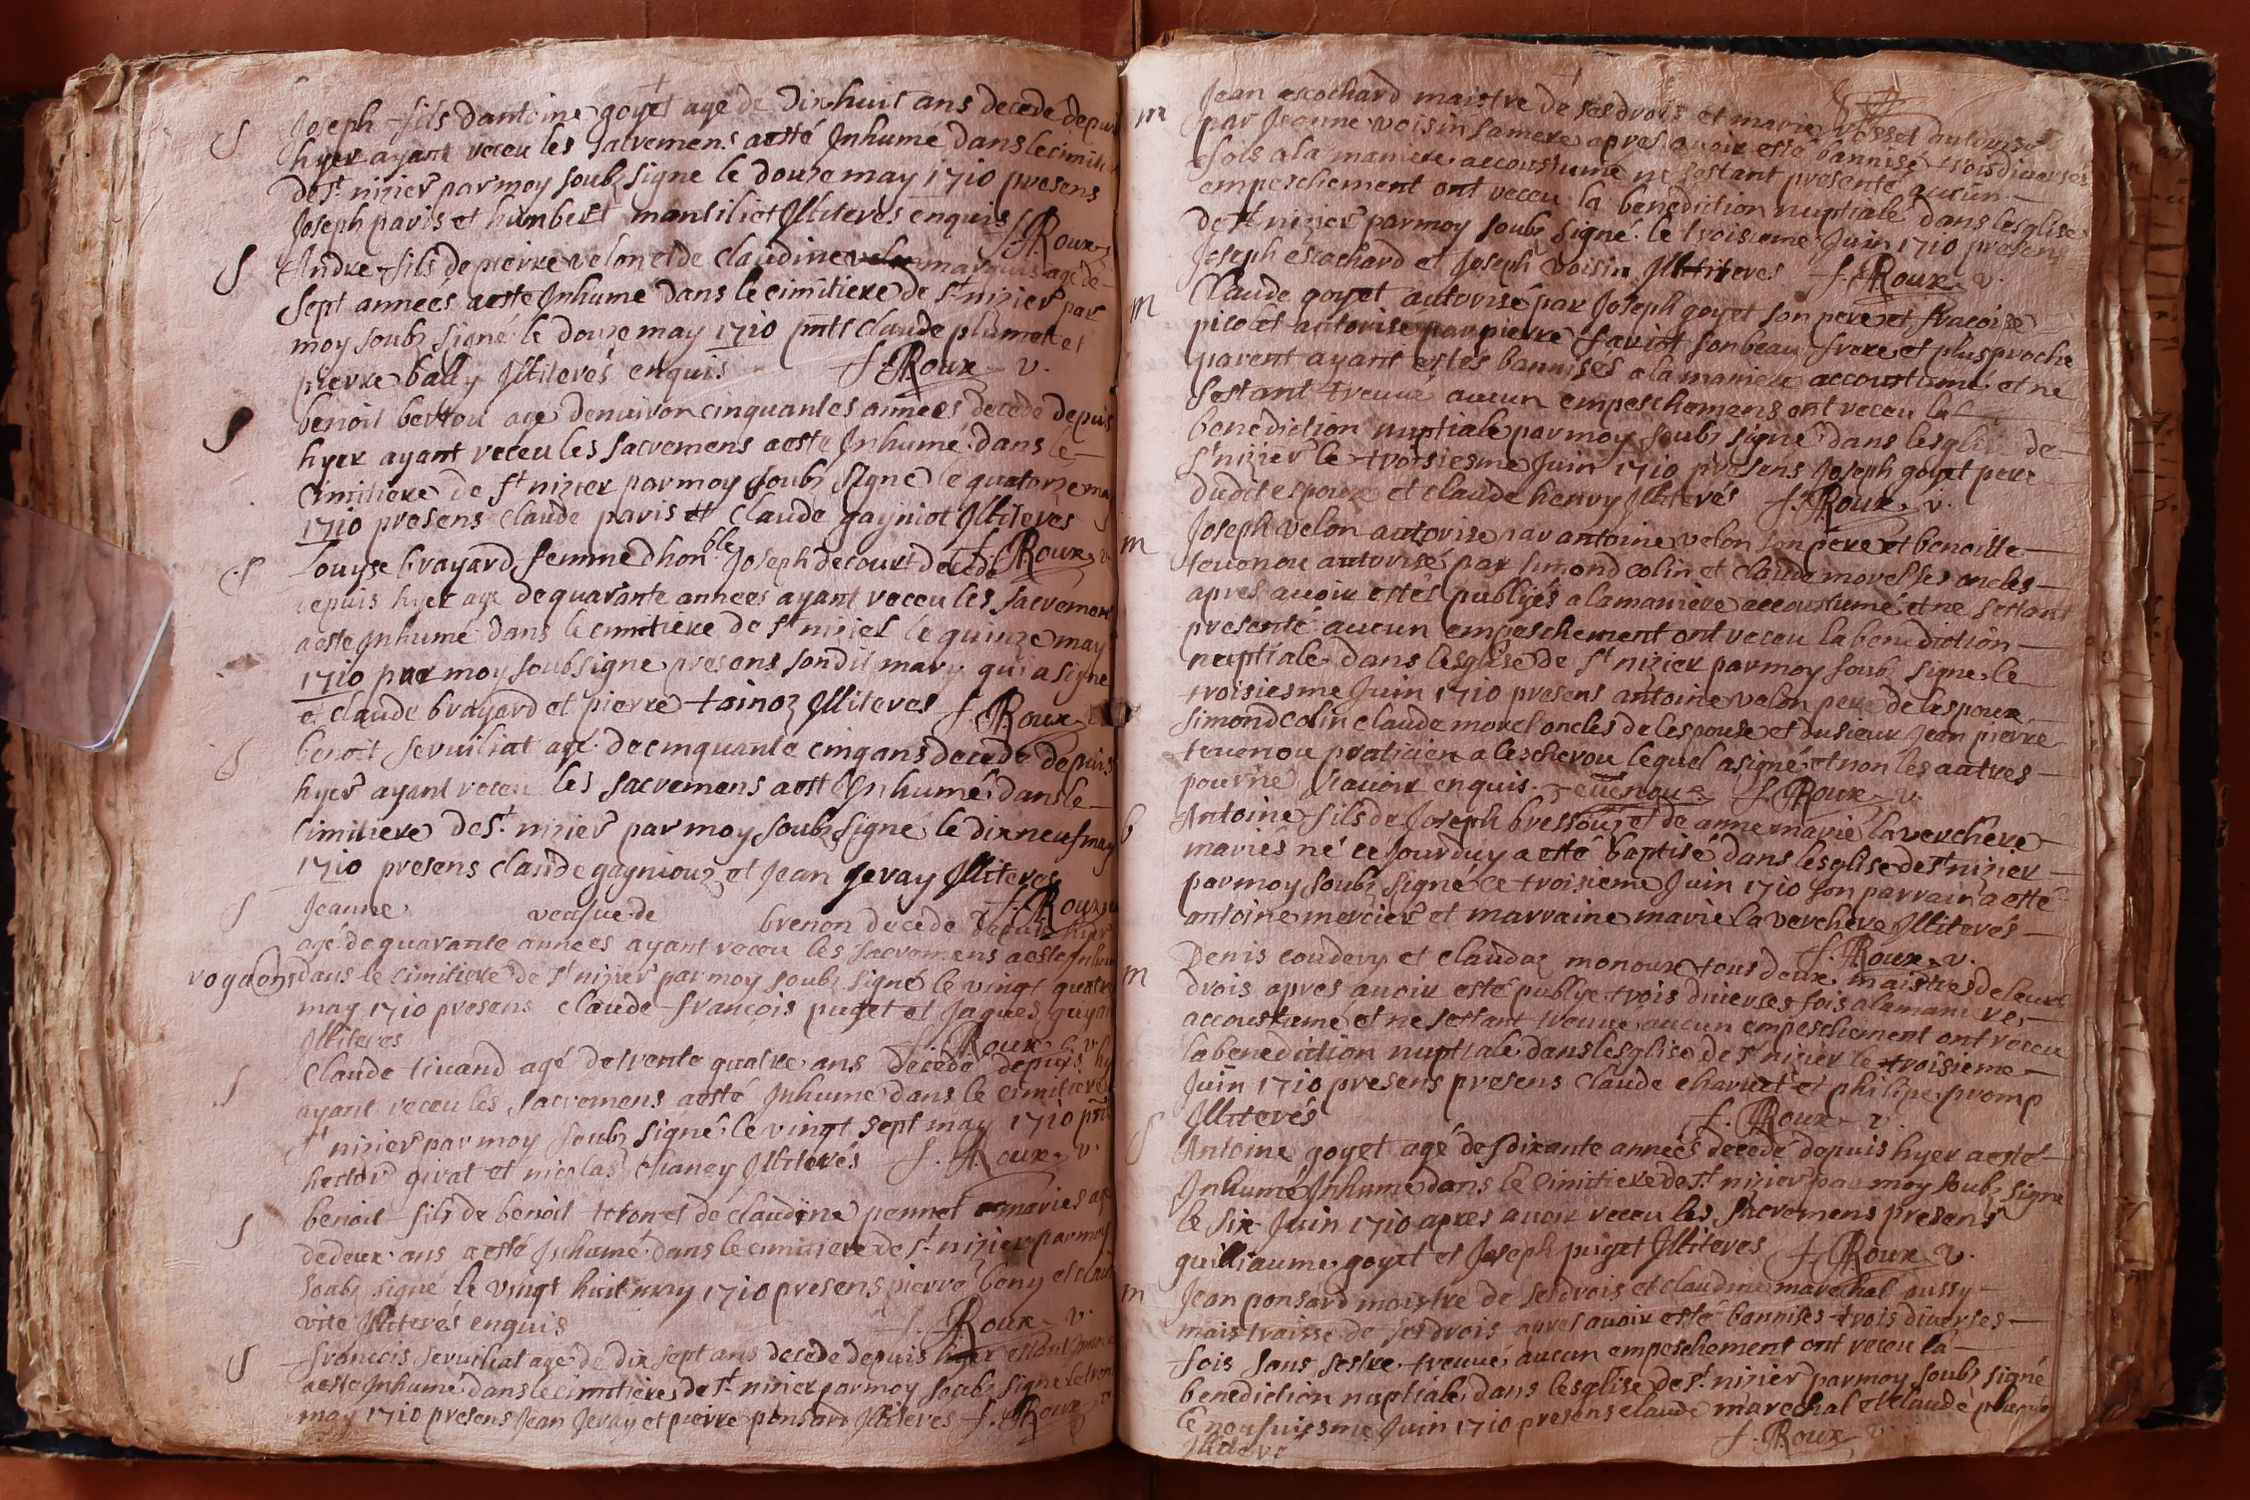 S Joseph fils dantoine goyet agé de Dixhuit ans decedé depuis
hyer ayant receu les sacremens aesté Inhumé dans le cimitiere
de st nizier par moy soubz signé le douze may 1710 presens
Joseph paris et humbert mantiliet Illiteres enquis f. Roux
S Andre fils de pierre velon et de claudine marquis agé de
sept années aesté Inhumé dans le cimitiere de st nizier par
moy soubz signé le douze may 1710 pnts claude plumet et
pierre bally Illiterés enquis f. Roux v.
S benoit berthou agé denuiron cinquantes années decedé depuis
hyer ayant receu les sacremens aesté Inhumé dans le
cimitiere de st nizier par moy soubz signé le quatorze may
1710 presens claude paris et claude gayniot Illiteres
f. Roux v.
S Louyse brayard femme dhonble Joseph decourt decedé
depuis hyer agé dequarante années ayant receu les sacremens
aesté Inhumé dans le cimitiere de st nizier le quinze may
1710 par moy soubsigne presens sondit mary qui a signe
et claude brayard et pierre toinoz Illiteres f. Roux
benoit seruiliat agé de cinquante cinq ans decedé depuis
hyer ayant receu les sacremens aesté Inhumé dans le
cimitiere de st. nizier par moy soubz signé le dixneuf may
1710 presens claude gaynioux et Jean Jeray Illiteres
f. Roux
S Jeanne veufue de brenon decedé depuis hyer
agé de quarante années ayant receu les sacremens aesté Inhumé
rogaons dans le cimitiere de st nizier par moy soubz signé le vingt quatre
may 1710 presens claude françois puget et Jaques guyat
Illiteres f. Roux v.
S Claude tiuand agé detrente quatre ans decedé depuis hyer
ayant receu les sacremens aesté Inhumé dans le cimitiere
st nizier par moy soubz signé le vingt sept may 1710 pnts
hector givat et nicolas chaney Illiterés f. Roux v.
S benoit fils de benoit teton et de claudine pennet maries agé
dedeux ans aesté Inhumé dans le cimitiere de st. nizier par moy
soubz signé le vingt huit may 1710 presens pierre bony et claude
vite Illiterés enquis f. Roux v.
S françois seruiliat agé de dix sept ans decedé depuis hyer
aesté Inhumé dans le cimitiere de st. nizier par moy soubz signé le
may 1710 presens Jean Jeray et pierre ponsard Illiteres f. Roux v
m Jean escochard maistre de ses drois et marie rosset autorisé
par Jeanne voisin sa mere apres auoir esté bannisé trois diuerses
fois a la maniere accoustumé ne sestant presenté aucun
empeschement ont receu la benediction nuptiale dans lesglise
de st nizier par moy soubz signé le troisieme Juin 1710 presens
Joseph escochard et Joseph voisin Illiteres f. Roux v.
m Claude goyet autorisé par Joseph goyet son pere et fracoise
picolet autorise par pierre fauiot son beau frere et plus proche
parent ayant estés bannisés a la maniere accoustumé et ne
sestant treuué aucun empeschemens ont receu la
benediction nuptiale par moy soubz signé dans lesglise de
st nizier le troisiesme Juin 1710 presens Joseph goyet pere
dudit espoux et claude henry Illiterés f. Roux v.
m Joseph velon autorise par antoine velon son pere et benoitte
teuenou autorisé par simond colin et claude morel ses oncles
apres auoir estés publiyés a la maniere accoustumé et ne sestant
presenté aucun empeschement ont receu la benediction
nuptiale dans lesglise de st nizier par moy soubz signé le
troisiesme Juin 1710 presens antoine velon pere de lespoux
simond colin claude morel oncles de lespouse et du sieur Jean pierre
teuenou pratiicien a lescherou lequel a signé et non les autres
pour ne scauoir enquis. Teuenoux f. Roux v.
b Antoine fils de Joseph bressoux et de anne marie la verchere
mariés né ce Jourduy a esté baptisé dans lesglise de st nizier
par moy soubz signé ce troisieme Juin 1710 son parrain a esté
antoine mercier et marraine marie la verchere Illiterés
f. Roux v.
m Denis coudery et claudaz monoux tous deux maistres de leurs
drois apres auoir esté publiye trois diuerses fois a la maniere
accoustumé et ne sestant treuué aucun empeschement ont receu
la benediction nuptiale dans lesglise de st nizier le troisieme
Juin 1710 presens presens claude charuet et philipe promp
Illiterés f. Roux v.
S Antoine goyet agé de soixante années decedé depuis hyer aesté
Inhumé Inhumé dans le cimitiere de st nizier par moy soubz signé
le six Juin 1710 apres auoir receu les sacremens presens
guilliaume goyet et Joseph puget Illiteres f. Roux v.
m Jean ponsard maistre de ses drois et claudine marechal aussy
maistraisse de ses drois apres auoir esté bannises trois diuerses
fois sans sestre treuué aucun empeschement ont receu la
benediction nuptiale dans lesglise de st. nizier par moy soubz signé
le neufuiesme Juin 1710 presens claude marechal et claude plumet
Illiteres f. Roux v.